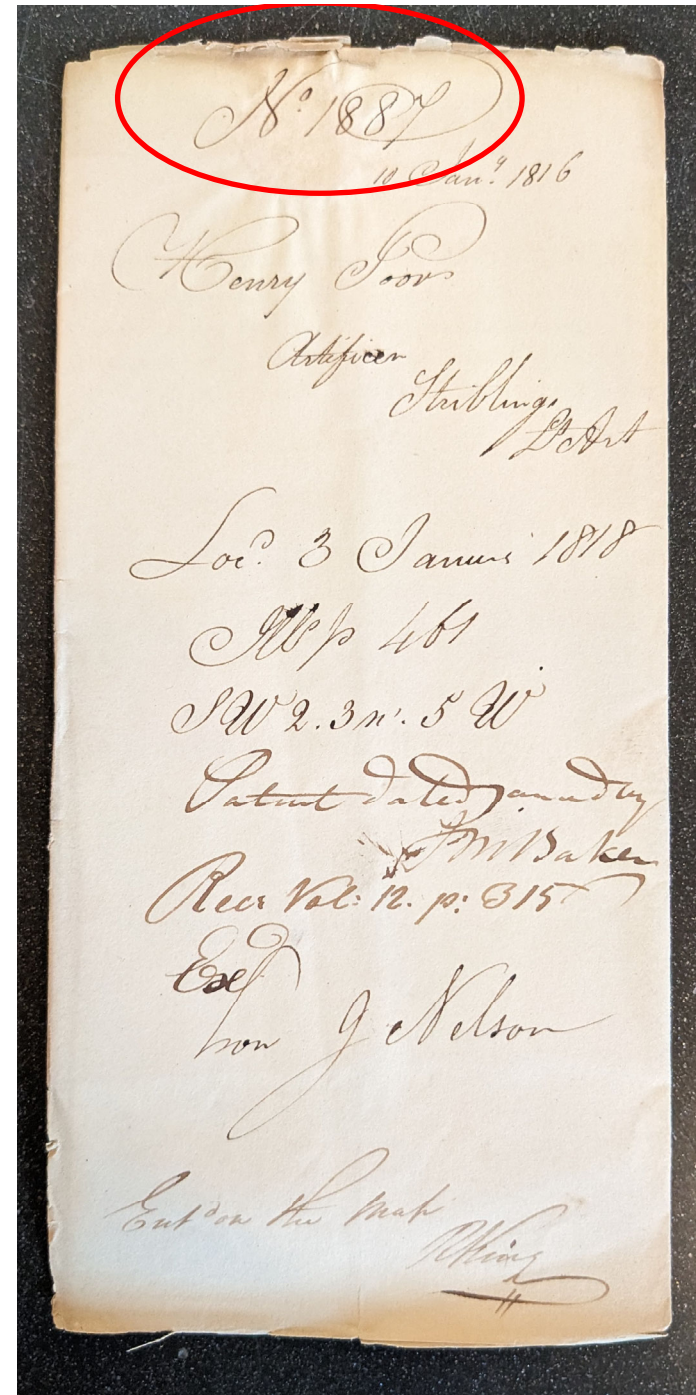 No 1887
10 Jany 1816
Henry Poors
Artificer
Stribling's
Lt Art
Loc'd 3 January 1818
p 461
SW 2. 3 n. 5 W
Patent dated same day
Baker
Rec'd Vol: 12. p: 315
Exd
hon J Nelson
Ent'd on the Map
R King